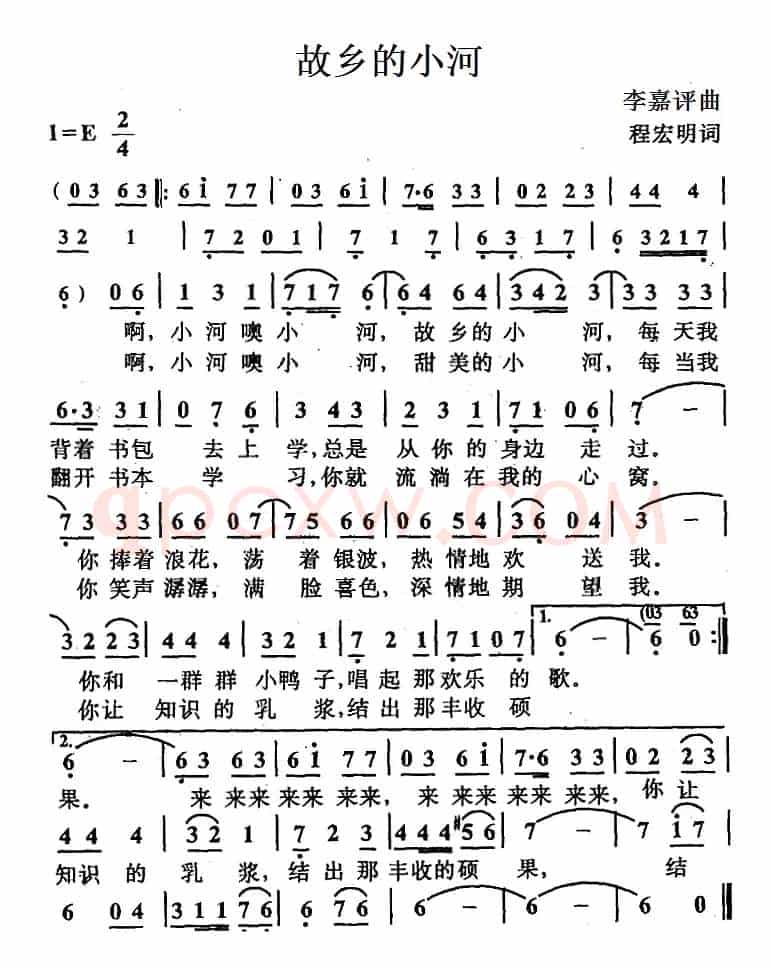 故乡的小河
李嘉评曲
1=E 2/4
程宏明词
( 03 63 ‖: 6i 77 | 03 6i | 7·6 33 | 02 23 | 44 4 |
32 1 | 7 2 01 | 7 1 7 | 63 17 | 6 3217 |
6 ) 06 | 1 3 1 | 717 6 | 64 64 | 342 3 | 33 33 |
啊, 小 河 噢 小 河, 故 乡 的 小 河, 每 天 我
啊, 小 河 噢 小 河, 甜 美 的 小 河, 每 当 我
6·3 31 | 0 7 6 | 3 43 | 2 3 1 | 71 06 | 7 − |
背着 书包 去 上 学,总是 从 你 的 身边 走 过.
翻开 书本 学 习,你就 流 淌 在 我的 心 窝.
73 33 | 66 07 | 75 66 | 06 54 | 36 04 | 3 − |
你 捧着 浪花, 荡 着 银波, 热 情地 欢 送 我.
你 笑声 潺潺, 满 脸 喜色, 深 情地 期 望 我.
32 23 | 44 4 | 32 1 | 7 2 1 | 71 07 | 1. 6 − | 6 0 (03 63 :‖
你和 一群 群 小鸭 子,唱 起 那欢乐 的 歌.
你让 知识 的 乳 浆,结 出 那丰收 硕
2. 6 − | 63 63 | 6i 77 | 03 6i | 7·6 33 | 02 23 |
果. 来 来来 来来 来来, 来 来来 来来 来来, 你 让
44 4 | 32 1 | 7 2 3 | 444 #56 | 7 − | 7 i7 |
知识 的 乳 浆, 结 出 那 丰收的硕 果, 结
6 04 | 311 76 | 6 76 | 6 − | 6 − | 6 0 ‖
qpcxw.COM